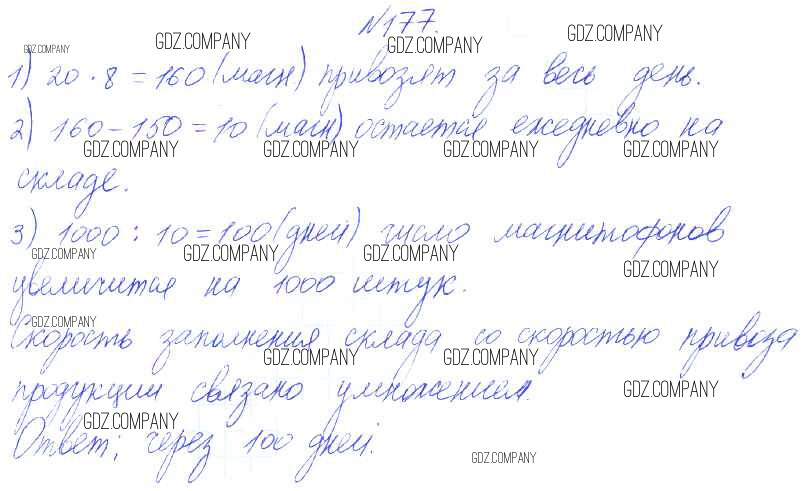 №177.
1) 20 · 8 = 160 (магн) привозят за весь день.
2) 160 - 150 = 10 (магн) остается ежедневно на
складе.
3) 1000 : 10 = 100 (дней) число магнитофонов
увеличится на 1000 штук.
Скорость заполнения склада со скоростью привоза
продукции связано умножением.
Ответ: через 100 дней.
GDZ.COMPANY GDZ.COMPANY GDZ.COMPANY GDZ.COMPANY
GDZ.COMPANY GDZ.COMPANY GDZ.COMPANY GDZ.COMPANY
GDZ.COMPANY GDZ.COMPANY GDZ.COMPANY GDZ.COMPANY
GDZ.COMPANY
GDZ.COMPANY GDZ.COMPANY GDZ.COMPANY
GDZ.COMPANY
GDZ.COMPANY